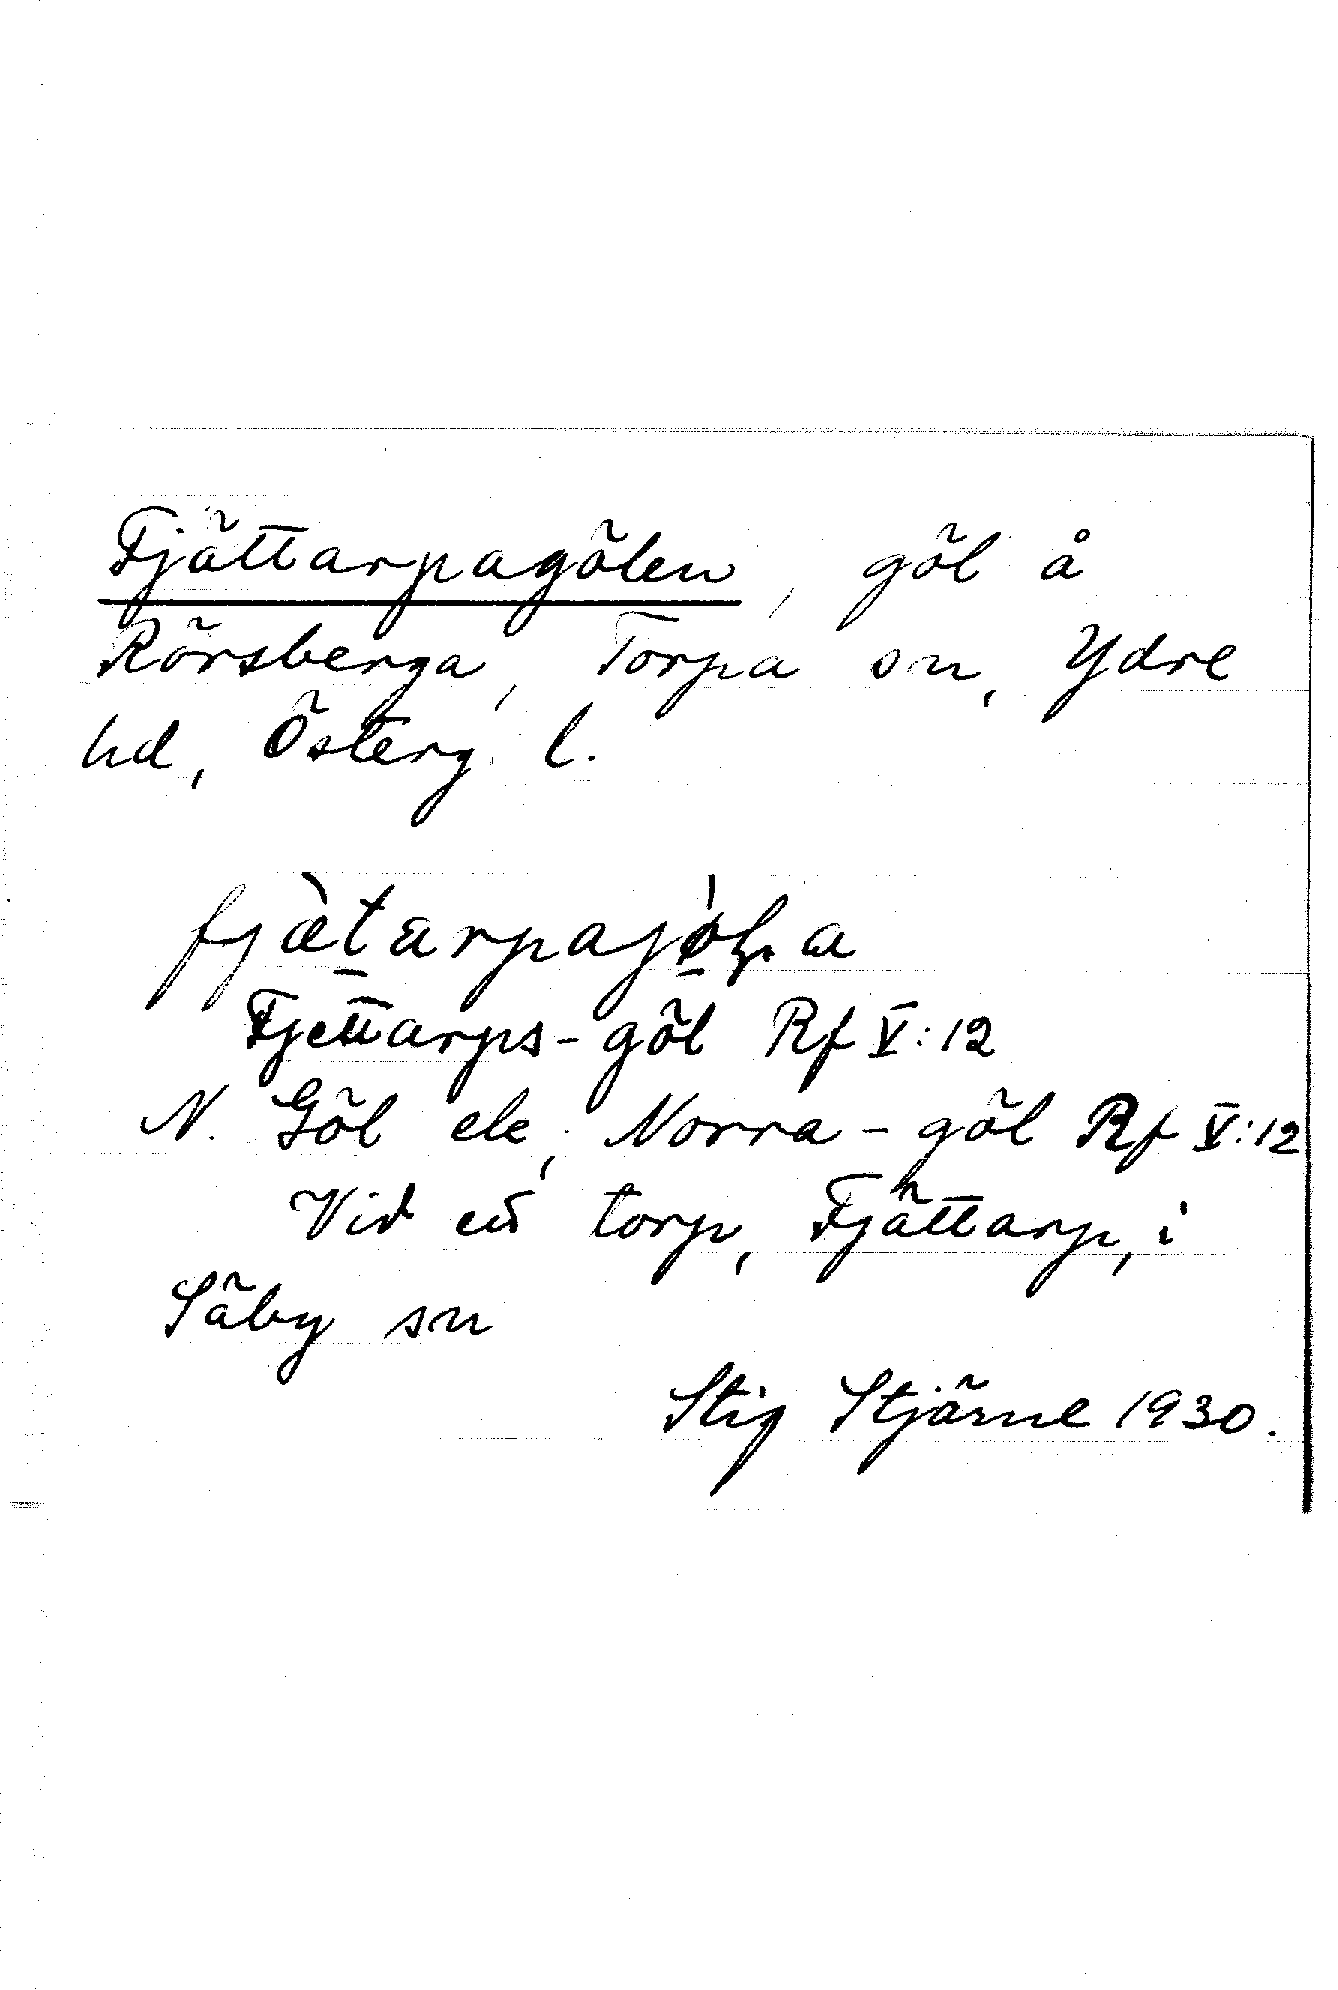 Fjättarpagölen, göl å
Rörsberga, Torpa sn, Ydre
hd, Österg. l.
Fjettarps-göl Rf V:12
N. Göl ek, Norra-göl Rf V:12
Vid ett torp, Fjättarp, i
Säby sn
Stig Stjärne 1930.